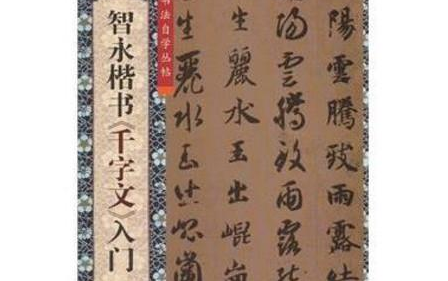 智永楷书《千字文》入门
书法自学丛帖
陽雲騰致雨露結
陽雲騰致雨露
生麗水玉出崐崗
生麗水玉出崐崗